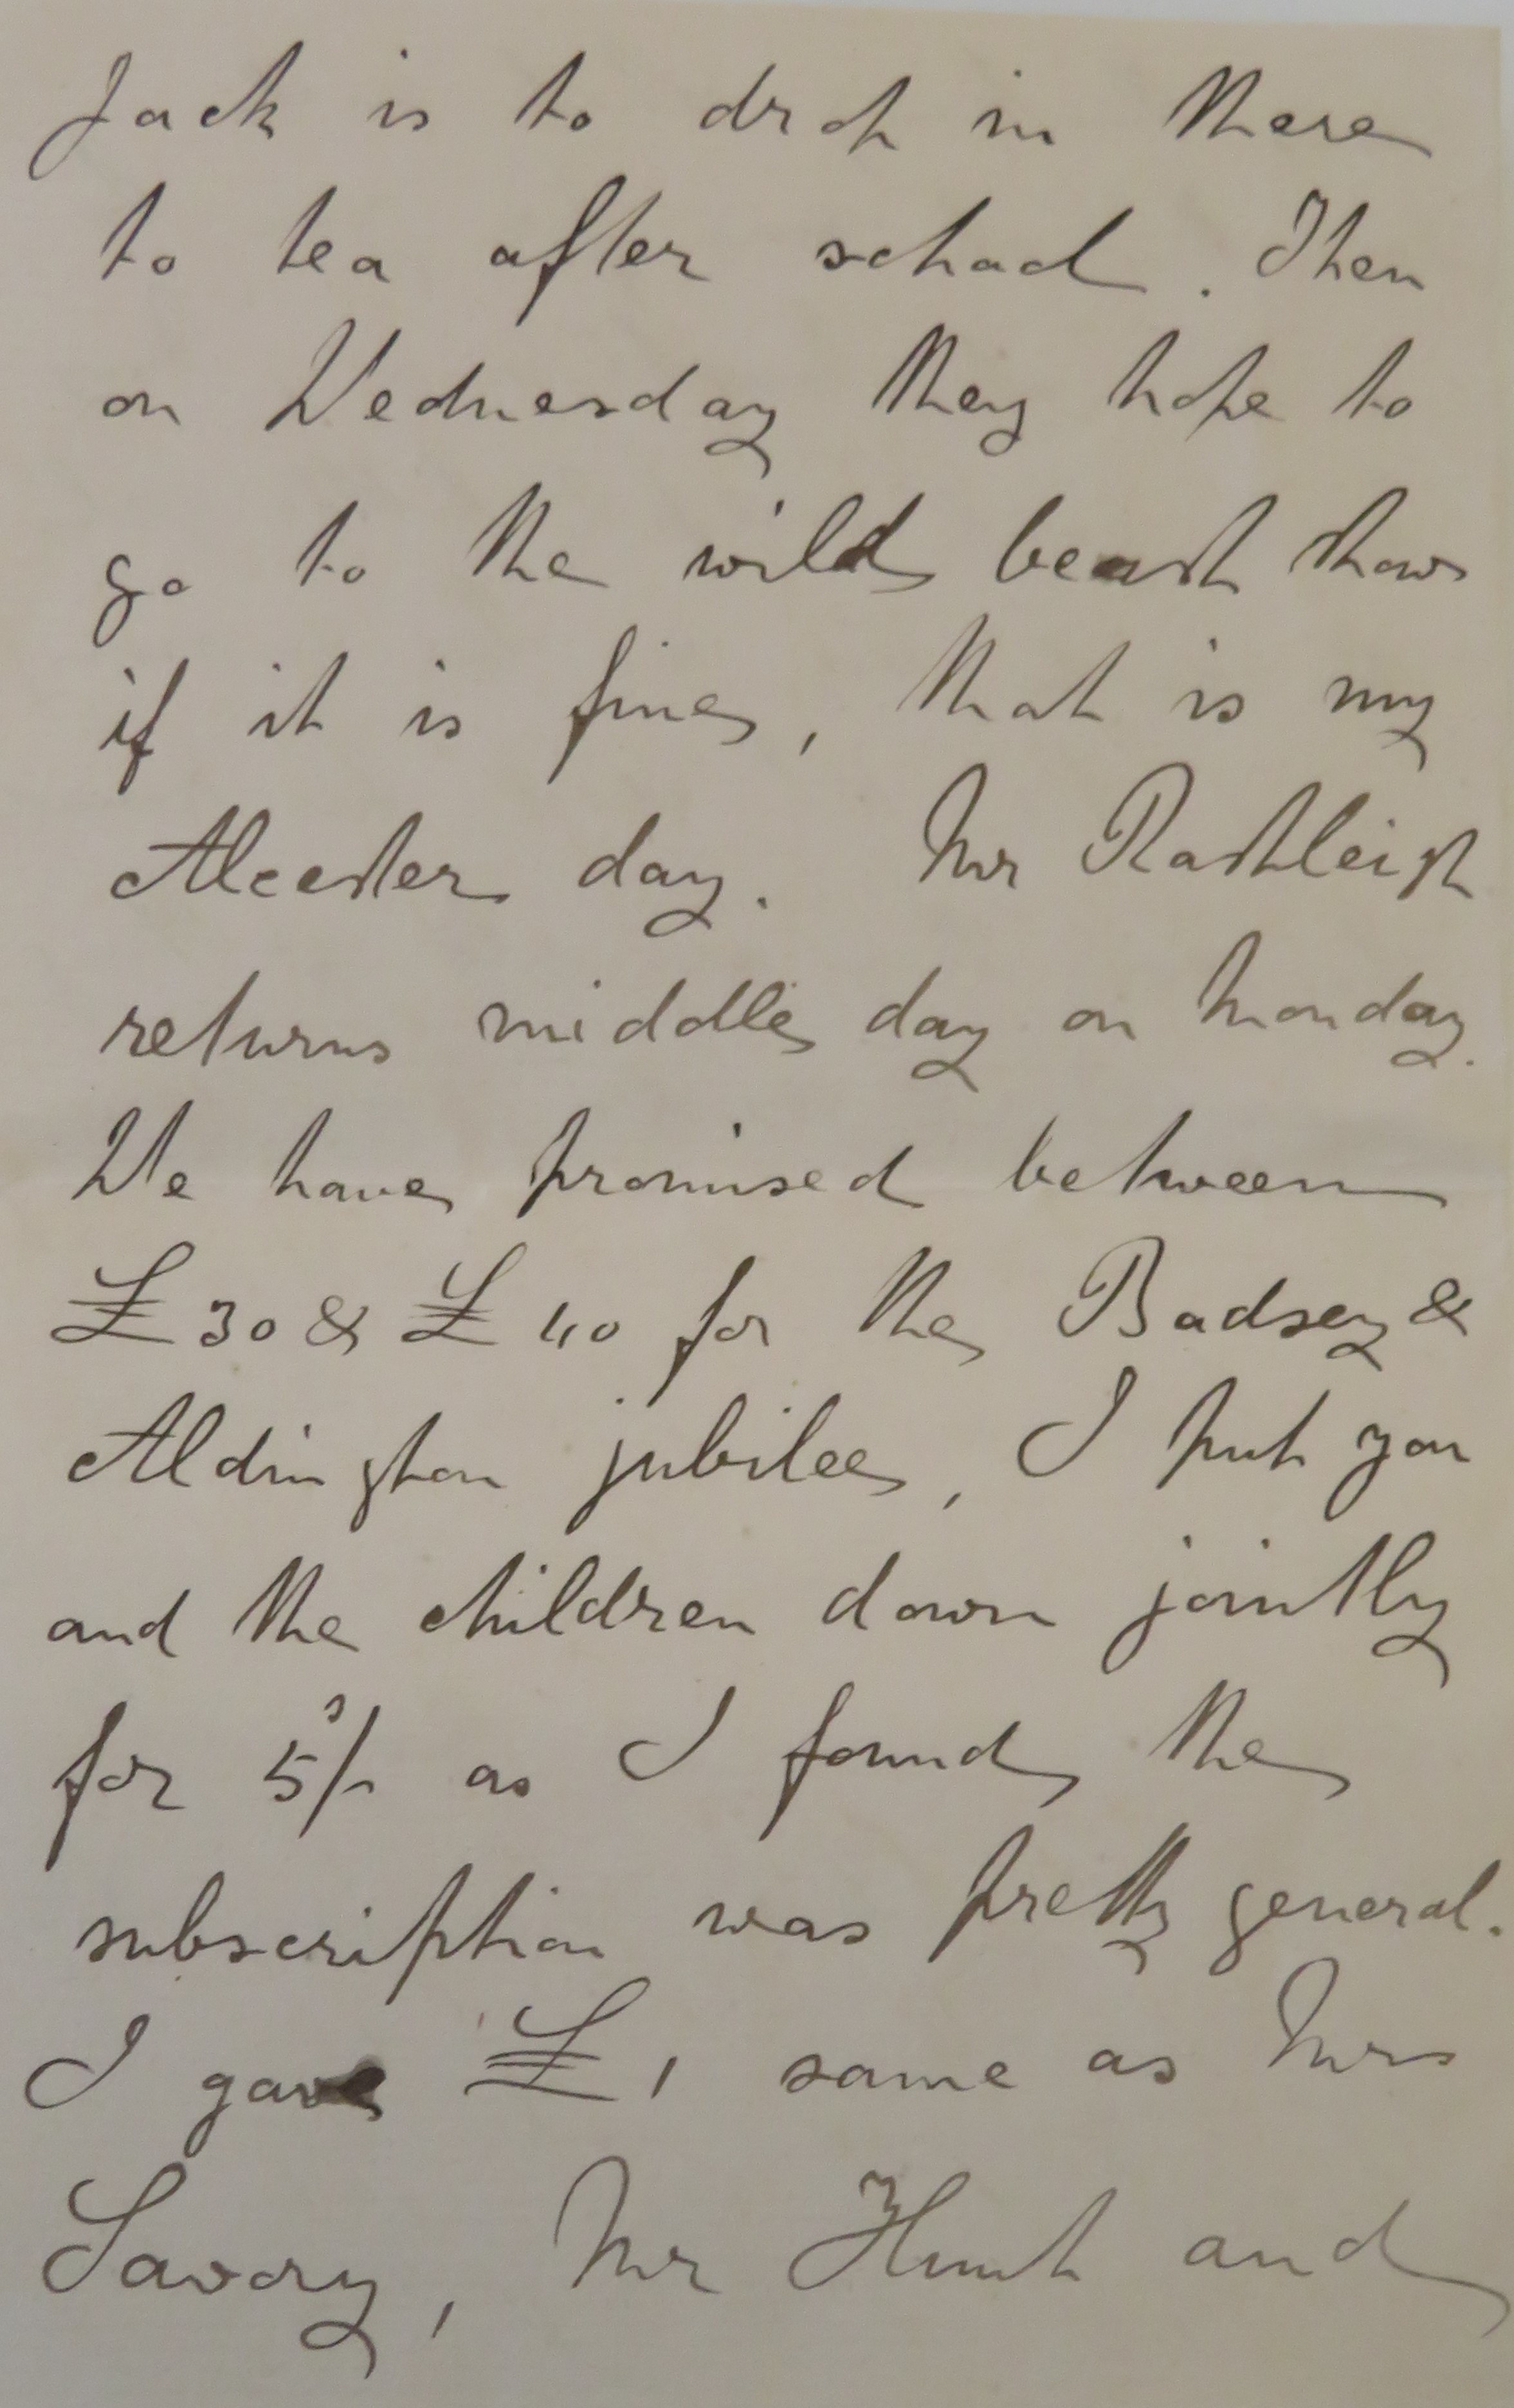 Jack is to drop in there
to tea after school. Then
on Wednesday they hope to
go to the wild beast show
if it is fine, that is my
Alcester day. Mr Rashleigh
returns middle day on Monday.
We have promised between
£30 & £40 for the Badsey &
Aldington jubilee, I put you
and the children down jointly
for 5s/- as I found the
subscription was pretty general.
I gave £1 same as Mrs
Savory, Mr Hunt and